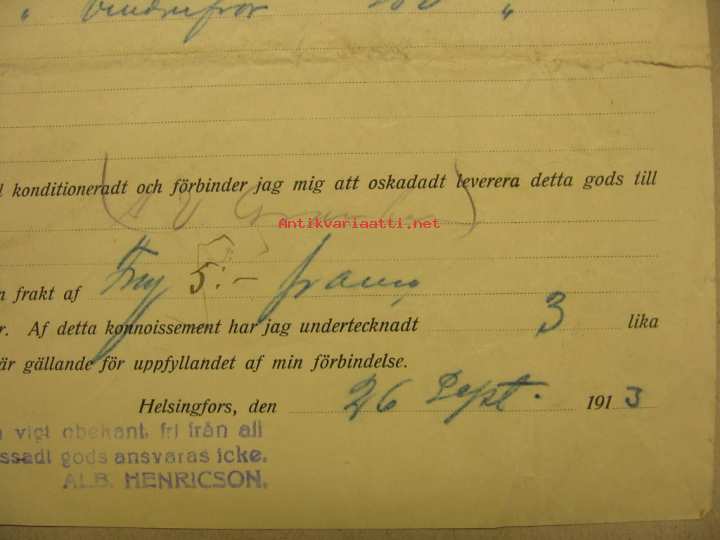 " 
l konditioneradt och förbinder jag mig att oskadadt leverera detta gods till
Antikvariaatti.net
n frakt af 5:-
r. Af detta konnoissement har jag undertecknadt 3 lika
är gällande för uppfyllandet af min förbindelse.
Helsingfors, den 26 Sept. 1913
vigt obekant, fri från all
ssadt gods ansvaras icke.
ALB. HENRICSON.